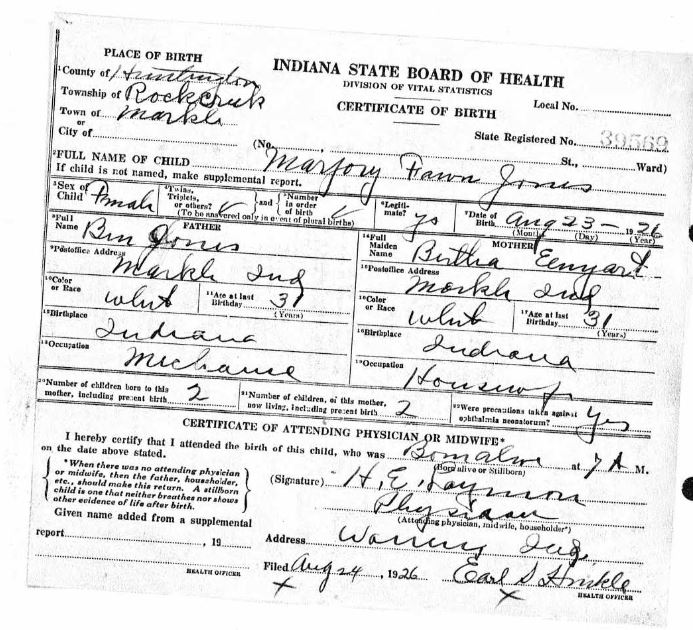 PLACE OF BIRTH
INDIANA STATE BOARD OF HEALTH
DIVISION OF VITAL STATISTICS
CERTIFICATE OF BIRTH
¹County of Huntington
Township of Rockcreek
Town of Markle
or
City of
Local No.
State Registered No. 39569
(No. St., Ward)
²FULL NAME OF CHILD Marjory Fawn Jones
If child is not named, make supplemental report.
³Sex of Child Female
⁴Twins, Triplets, or others? and ⁵Number in order of birth
(To be answered only in event of plural births)
⁶Legitimate? yes
⁷Date of Birth Aug 23 - 1926
(Month) (Day) (Year)
FATHER
⁸Full Name Ben Jones
⁹Postoffice Address
Markle Ind
¹⁰Color or Race White
¹¹Age at last Birthday 31
(Years)
¹²Birthplace
Indiana
¹³Occupation
Mechanic
MOTHER
¹⁴Full Maiden Name Bertha Eenyart
¹⁵Postoffice Address
Markle Ind
¹⁶Color or Race White
¹⁷Age at last Birthday 31
(Years)
¹⁸Birthplace
Indiana
¹⁹Occupation
Housewife
²⁰Number of children born to this mother, including present birth 2
²¹Number of children, of this mother, now living, including present birth 2
²²Were precautions taken against ophthalmia neonatorum? Yes
CERTIFICATE OF ATTENDING PHYSICIAN OR MIDWIFE*
I hereby certify that I attended the birth of this child, who was Born alive at 7 A M.
(Born alive or Stillborn)
on the date above stated.
*When there was no attending physician
or midwife, then the father, householder,
etc., should make this return. A stillborn
child is one that neither breathes nor shows
other evidence of life after birth.
(Signature) H. E. Laymon
Physician
(Attending physician, midwife, householder*)
Given name added from a supplemental
report , 19
HEALTH OFFICER
Address Warren Ind.
Filed Aug 24, 1926 Earl S Hinkle
HEALTH OFFICER